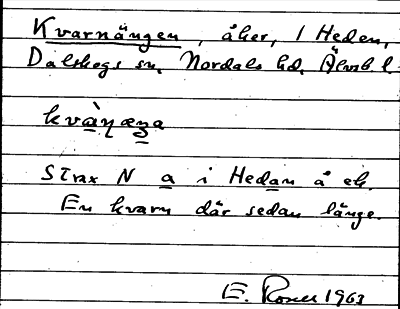 Kvarnängen, åker, 1 Heden,
Dalskogs sn, Nordals hd, Älvsb. l.
kvàɳæŋa
Strax N a i Hedan å ek.
En kvarn där sedan länge.
E. Rosell 1963